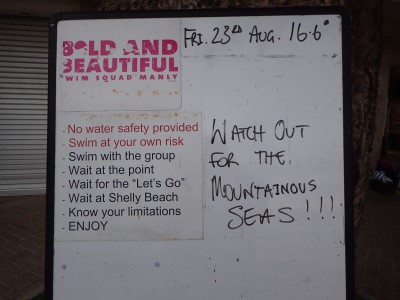 BOLD AND
BEAUTIFUL
SWIM SQUAD MANLY
FRI. 23RD AUG. 16.6°
- No water safety provided
- Swim at your own risk
- Swim with the group
- Wait at the point
- Wait for the "Let's Go"
- Wait at Shelly Beach
- Know your limitations
- ENJOY
WATCH OUT
FOR THE.
MOUNTAINOUS
SEAS!!!